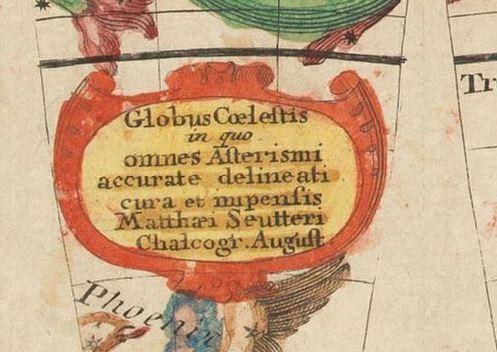 Globus Cœleſtis
in quo
omnes Aſterismi
accurate delineati
cura et impenſis
Matthæi Seutteri
Chalcogr. Auguſt
Phoenix
Tr